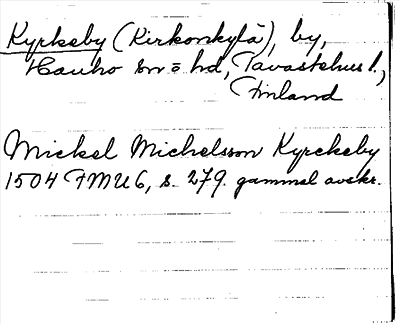 Kyrkeby (Kirkonkylä), by,
Hauho sn o hd, Tavastehus l.,
Finland
Mickel Michelsson Kyrckeby
1504 FMU 6, s. 279. gammal avskr.